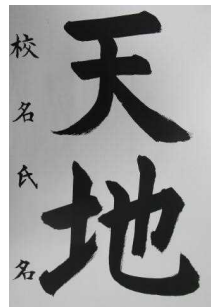 天地
校名氏名